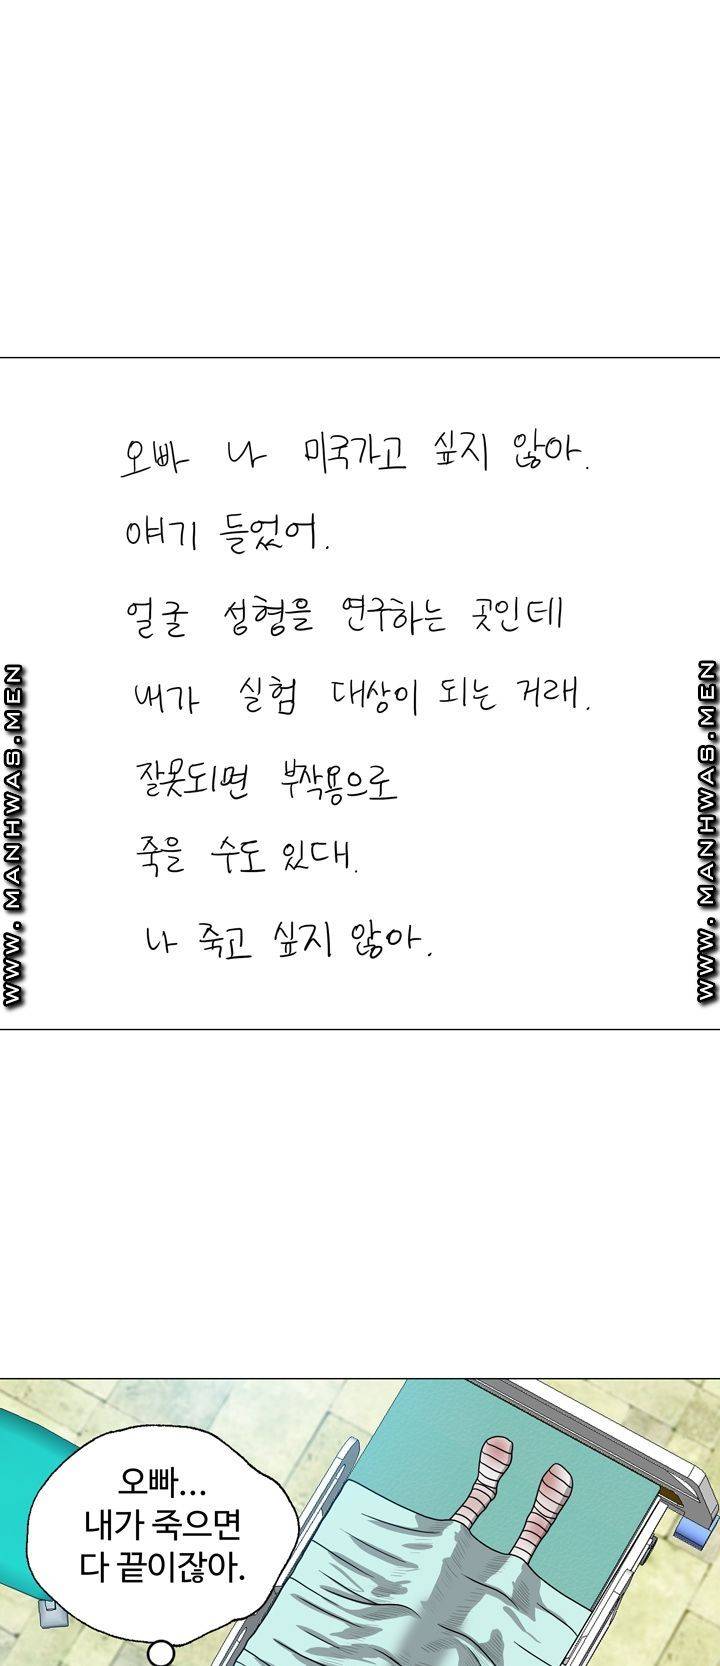 오빠 나 미국가고 싶지 않아.
얘기 들었어.
얼굴 성형을 연구하는 곳인데
내가 실험 대상이 되는 거래.
잘못되면 부작용으로
죽을 수도 있대.
나 죽고 싶지 않아.
WWW.MANHWAS.MEN
WWW.MANHWAS.MEN
오빠...
내가 죽으면
다 끝이잖아.